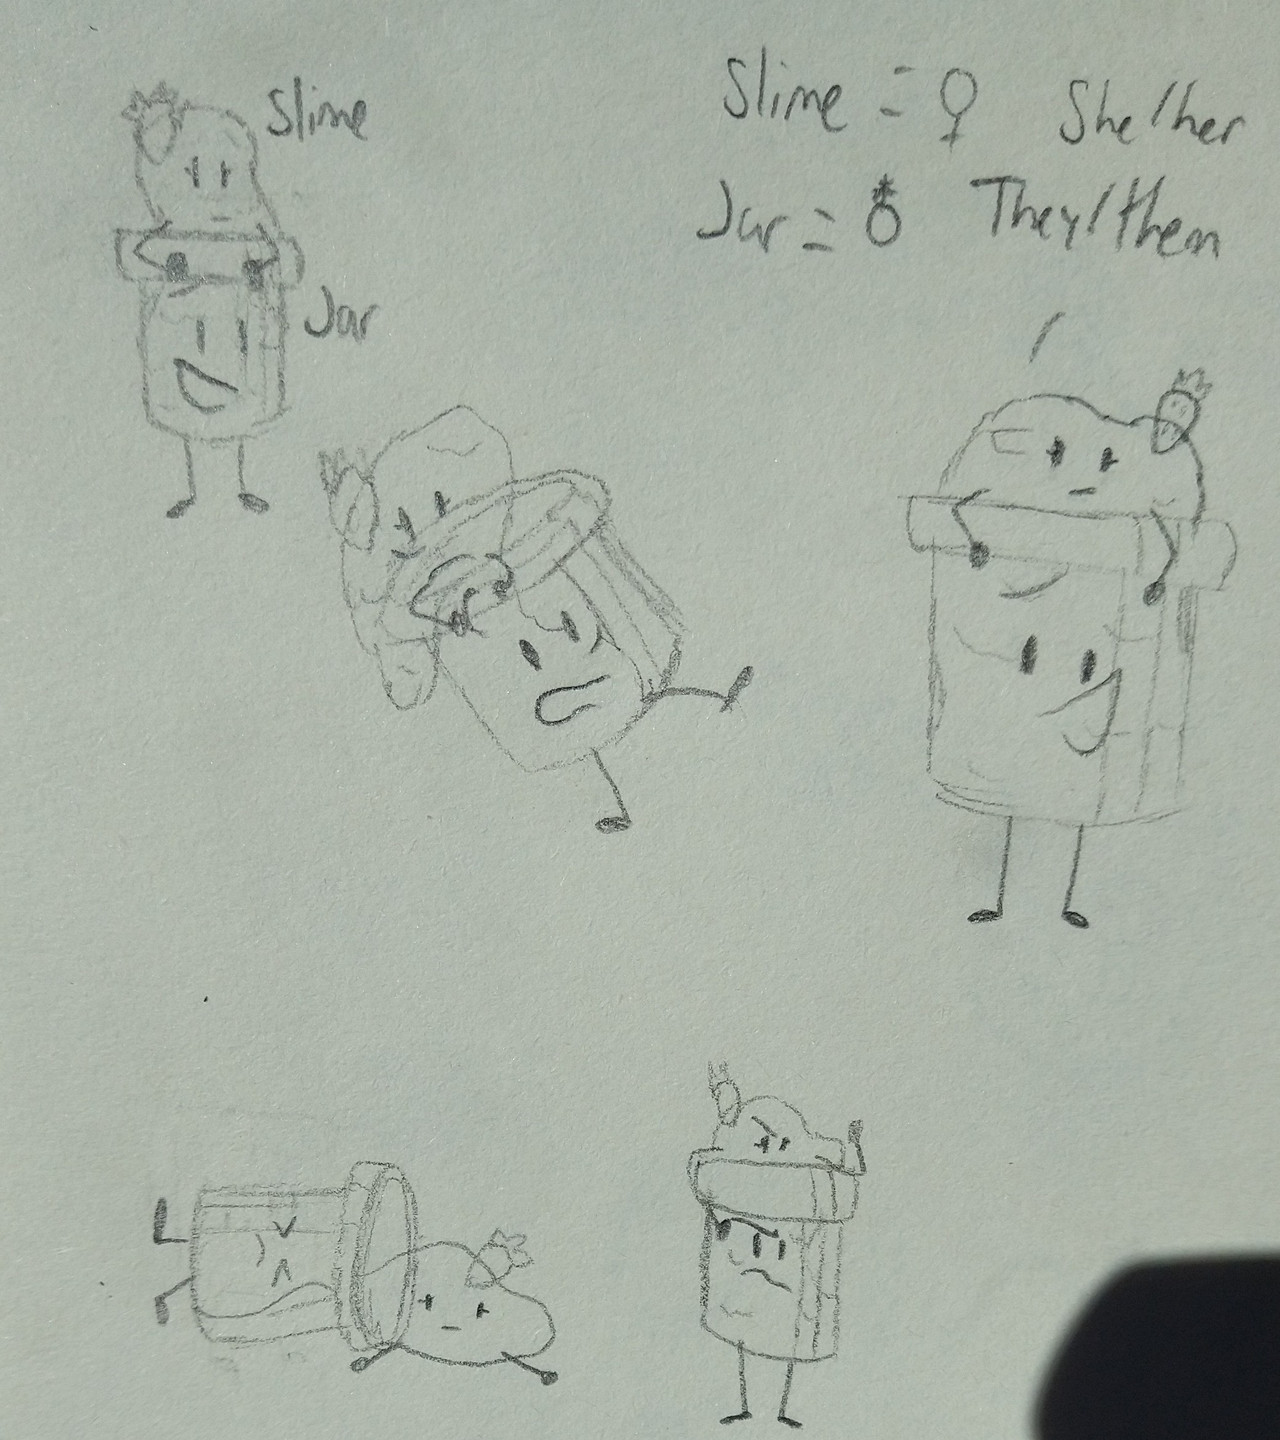 Slime
Slime = ♀ She/her
Jar = ⚨ They/them
Jar